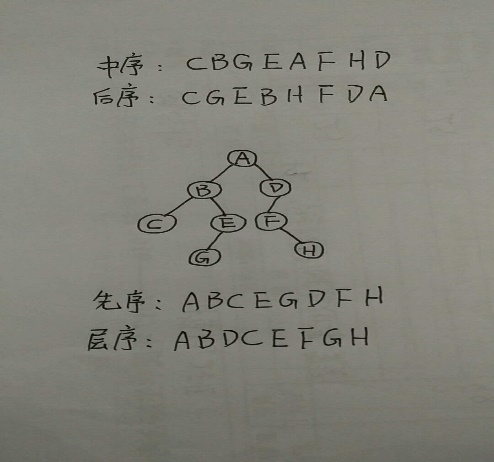 中序： CBGEAFHD
后序： CGEBHFDA
A
B D
C E F
G H
先序： ABCEGDFH
层序： ABDCEFGH